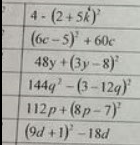 4 - (2+5k)²
(6c-5)² + 60c
48y + (3y-8)²
144q² - (3-12q)²
112p + (8p-7)²
(9d+1)² - 18d